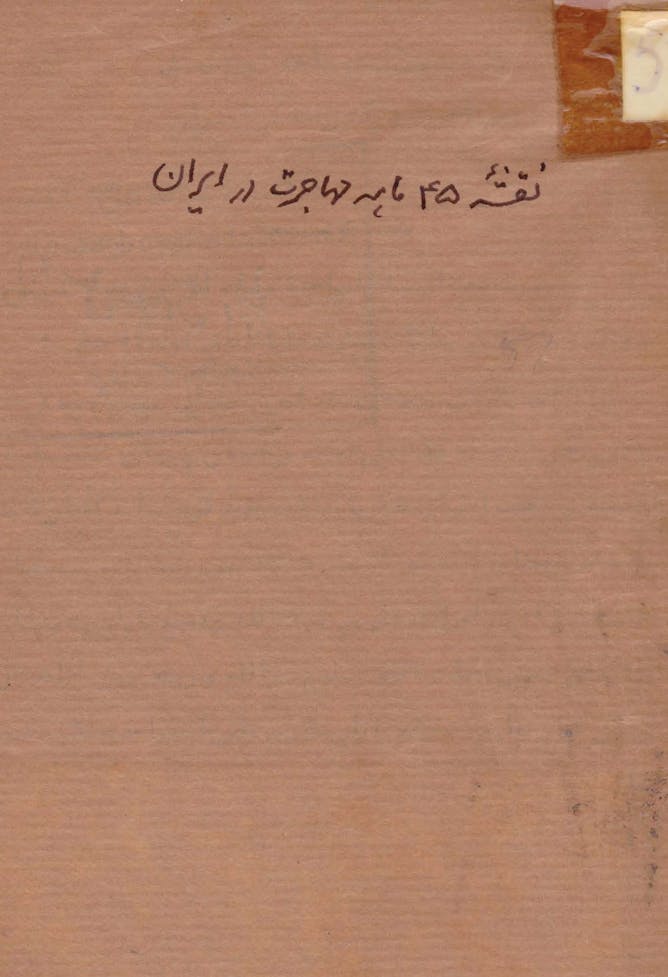 5
نقشهٔ ۴۵ ماهه مهاجرت در ایران